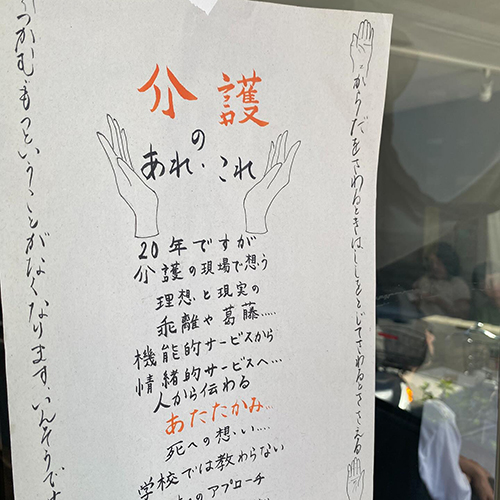 介護
の
あれ・これ
20年ですが
介護の現場で想う
理想と現実の
乖離や葛藤.....
機能的サービスから
情緒的サービスへ...
人から伝わる
あたたかみ...
死への想い....
学校では教わらない
のアプローチ
からだをさわるときは、ししをとじてさわるとささえる
つかむ、もつということがなくなります、いんそうです